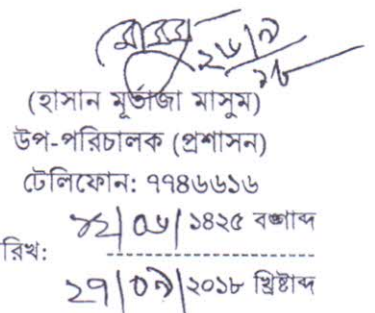 ২৬|৯
১৮
(হাসান মূর্তাজা মাসুম)
উপ-পরিচালক (প্রশাসন)
টেলিফোন: ৭৭৪৬৬১৬
১২|০৬|১৪২৫ বঙ্গাব্দ
রিখ: --------------------
২৭|০৯|২০১৮ খ্রিষ্টাব্দ